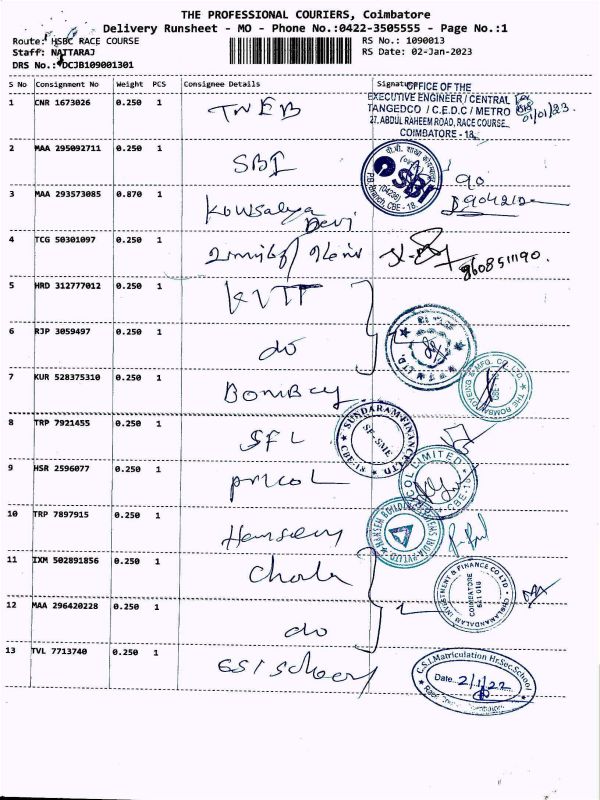 THE PROFESSIONAL COURIERS, Coimbatore
Delivery Runsheet - MO - Phone No.:0422-3505555 - Page No.:1
Route: HSBC RACE COURSE
RS No.: 1090013
Staff: NATTARAJ
RS Date: 02-Jan-2023
DRS No.: DCJB109001301
S No Consignment No Weight PCS Consignee Details Signature
OFFICE OF THE
EXECUTIVE ENGINEER / CENTRAL
TANGEDCO / C.E.D.C / METRO
27, ABDUL RAHEEM ROAD, RACE COURSE,
COIMBATORE - 18.
01/01/23.
1 CNR 1673026 0.250 1 TNEB
2 MAA 295092711 0.250 1 SBI
SBI
CBE-18
90
3 MAA 293573085 0.870 1 Kowsalya
Devi
4 TCG 50301097 0.250 1
5 HRD 312777012 0.250 1 KVTT
6 RJP 3059497 0.250 1 do
7 KUR 528375310 0.250 1 Bombay
8 TRP 7921455 0.250 1 SFL
SUNDARAM FINANCE LTD
SF-SME
CBE-18
9 HSR 2596077 0.250 1
10 TRP 7897915 0.250 1
11 IXM 502891856 0.250 1 Chola
CHOLAMANDALAM INVESTMENT & FINANCE CO LTD
COIMBATORE
641 018
12 MAA 296420228 0.250 1 do
13 TVL 7713740 0.250 1 CSI School
C.S.I. Matriculation Hr.Sec.School
Date 2/1/22